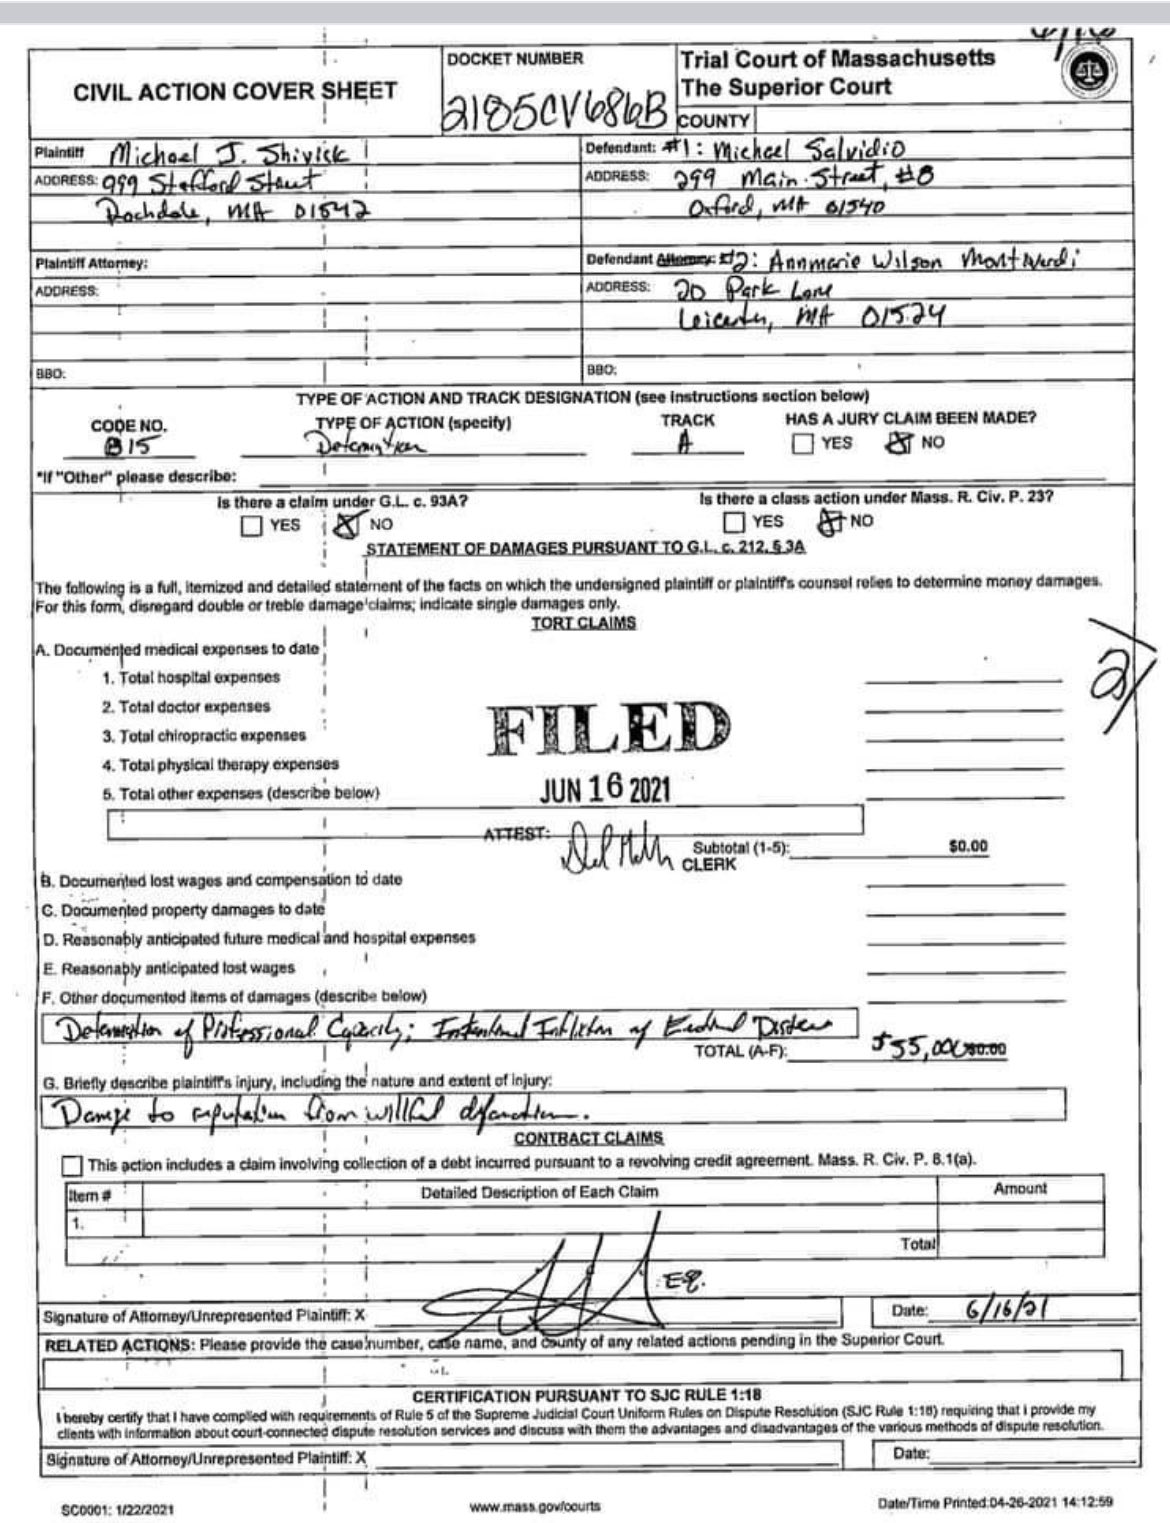 CIVIL ACTION COVER SHEET
DOCKET NUMBER
2185CV686B
Trial Court of Massachusetts
The Superior Court
COUNTY
Plaintiff Michael J. Shivick
ADDRESS: 999 Stafford Street
Rochdale, MA 01542
Defendant: #1: Michael Salvidio
ADDRESS: 299 Main Street, #8
Oxford, MA 01540
Plaintiff Attorney:
ADDRESS:
BBO:
Defendant Attorney: #2: Annmarie Wilson
ADDRESS: 20 Park Lane
Leicester, MA 01524
BBO:
TYPE OF ACTION AND TRACK DESIGNATION (see instructions section below)
CODE NO. TYPE OF ACTION (specify) TRACK HAS A JURY CLAIM BEEN MADE?
B15 Defamation A YES NO
*If "Other" please describe:
Is there a claim under G.L. c. 93A? Is there a class action under Mass. R. Civ. P. 23?
YES NO YES NO
STATEMENT OF DAMAGES PURSUANT TO G.L. c. 212, § 3A
The following is a full, itemized and detailed statement of the facts on which the undersigned plaintiff or plaintiff's counsel relies to determine money damages.
For this form, disregard double or treble damage claims; indicate single damages only.
TORT CLAIMS
A. Documented medical expenses to date
1. Total hospital expenses
2. Total doctor expenses
3. Total chiropractic expenses
4. Total physical therapy expenses
5. Total other expenses (describe below)
FILED
JUN 16 2021
ATTEST:
CLERK
Subtotal (1-5): $0.00
B. Documented lost wages and compensation to date
C. Documented property damages to date
D. Reasonably anticipated future medical and hospital expenses
E. Reasonably anticipated lost wages
F. Other documented items of damages (describe below)
Defamation of Professional Capacity; Intentional Infliction of Emotional Distress
TOTAL (A-F): $55,000 $0.00
G. Briefly describe plaintiff's injury, including the nature and extent of injury:
Damage to reputation from willful defamation.
CONTRACT CLAIMS
This action includes a claim involving collection of a debt incurred pursuant to a revolving credit agreement. Mass. R. Civ. P. 8.1(a).
Item # Detailed Description of Each Claim Amount
1.
Total
Signature of Attorney/Unrepresented Plaintiff: X Esq. Date: 6/16/21
RELATED ACTIONS: Please provide the case number, case name, and county of any related actions pending in the Superior Court.
CERTIFICATION PURSUANT TO SJC RULE 1:18
I hereby certify that I have complied with requirements of Rule 5 of the Supreme Judicial Court Uniform Rules on Dispute Resolution (SJC Rule 1:18) requiring that I provide my
clients with information about court-connected dispute resolution services and discuss with them the advantages and disadvantages of the various methods of dispute resolution.
Signature of Attorney/Unrepresented Plaintiff: X Date:
SC0001: 1/22/2021 www.mass.gov/courts Date/Time Printed:04-26-2021 14:12:59